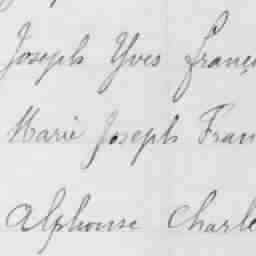 Joseph Yves Franç
Marie Joseph Fran
Alphonse Charle